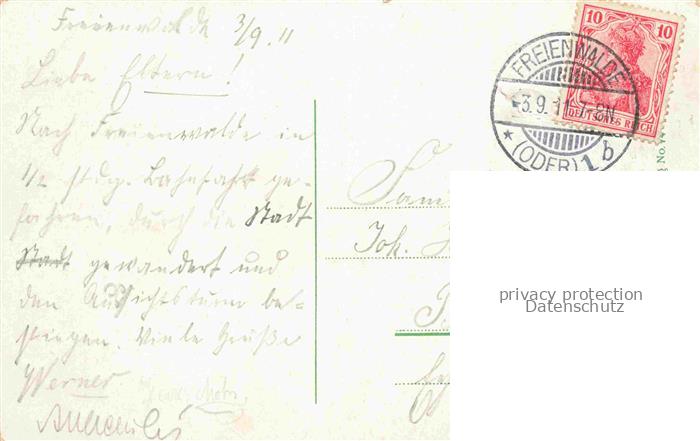 Freienwalde 3/9. 11
Liebe Eltern!
Nach Freienwalde in
1/2 stdg. Bahnfahrt ge-
fahren, durch die Stadt
Stadt gewandert und
den Aussichtsturm be-
stiegen. Viele Grüße
Werner
10 10
DEUTSCHES REICH
FREIENWALDE
3.9.11 1-2N
* (ODER) 1 b
Fam
Joh.
privacy protection
Datenschutz